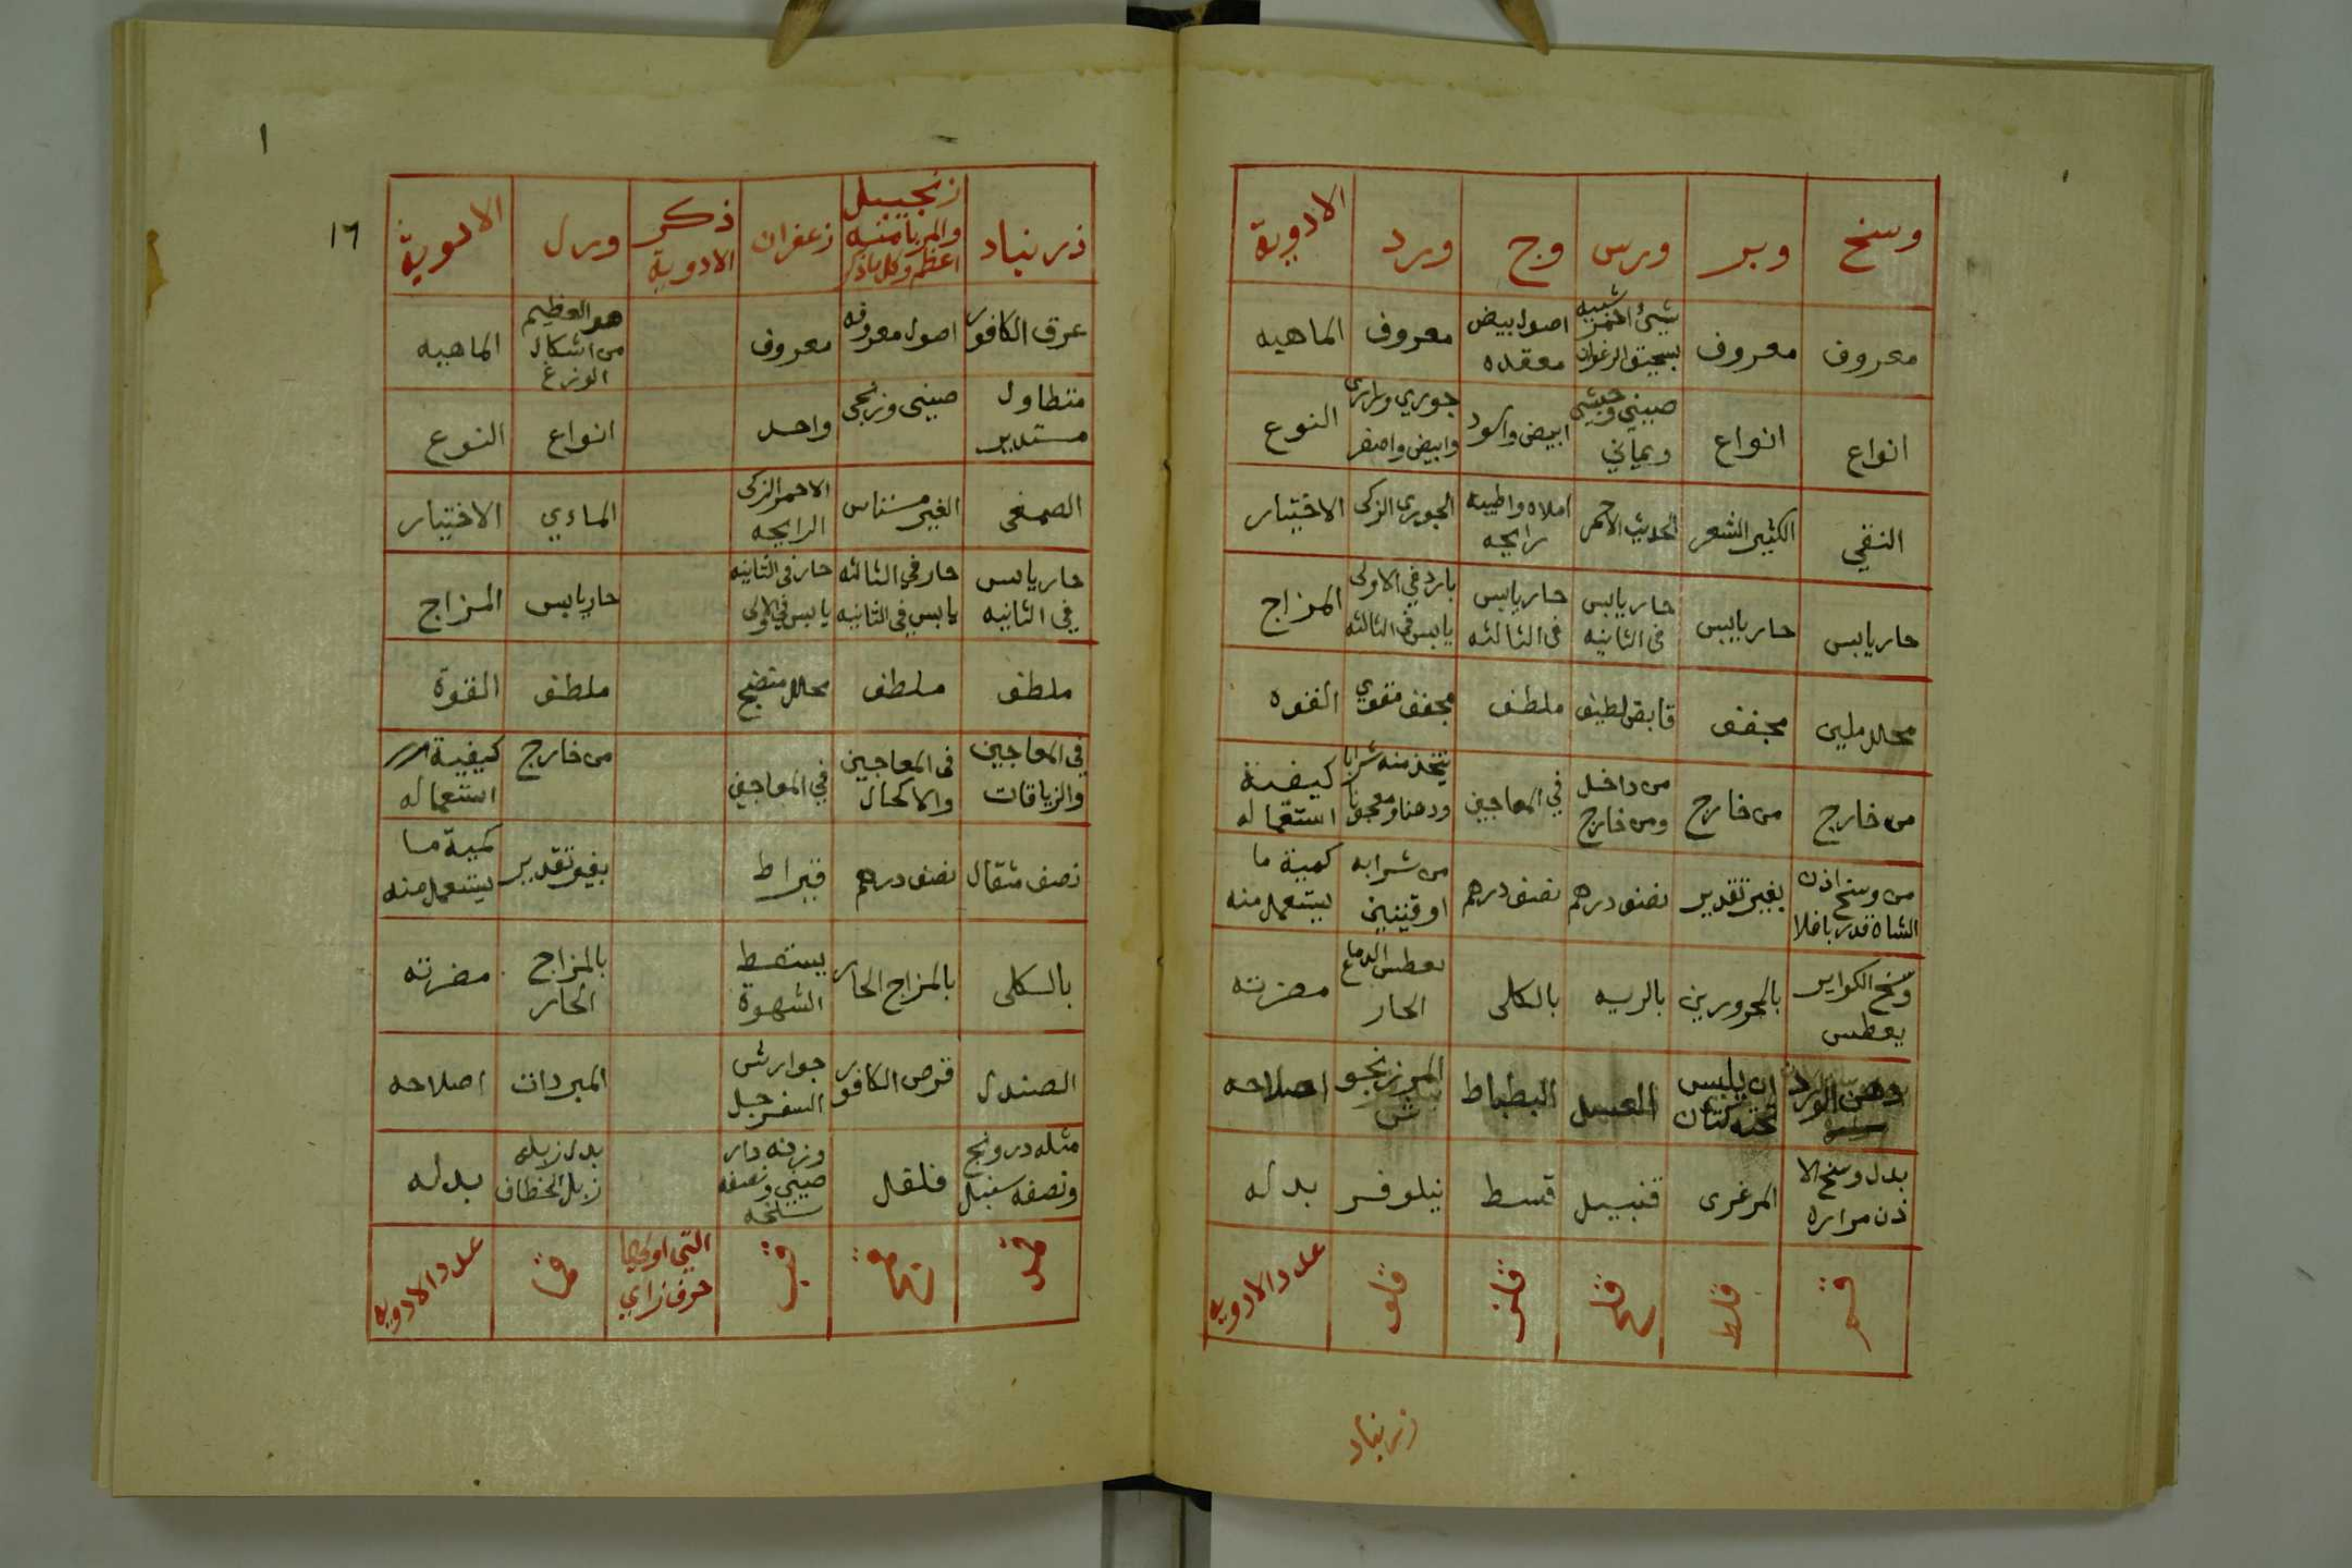 وسخ وبر ورس وج ورد الادوية
معروف معروف شيء احمر شبيه بسحيق الزعفران اصول بيض معقده معروف الماهيه
انواع انواع صيني وحبشي ويماني ابيض واسود جوري وابيض واصفر النوع
النقي الكثير الشعر الحديث الاحمر املاه واطيبه رايحه الجوري الزكى الاختيار
حار يابس حار يابس حار يابس فى الثانيه حار يابس فى الثالثه بارد في الاولى يابس فى الثالثه المزاج
محلل ملين مجفف قابض لطيف ملطف مجفف مقوي القوه
من خارج من خارج من داخل ومن خارج في المعاجين يتخذ منه شرابا ودهنا ومعجونا كيفية استعماله
من وسخ اذن الشاة قدر باقلا بغير تقدير نصف درهم نصف درهم من شرابه اوقيتين كمية ما يستعمل منه
وسخ الكواير يعطس بالمحرورين بالريه بالكلى يعطس الدماغ الحار مضرته
دهن الورد ان يلبس تحته كتان العسل البطباط المرزنجوش اصلاحه
بدل وسخ الاذن مراره المرغزى قنبيل قسط نيلوفر بدله
قلط قلو عدد الادويه
زرنباد
١
١٦
زرنباد زنجبيل والمربا منه اعظم وكل ماذكر زعفران ذكر الادوية ورل الادوية
عرق الكافور اصول معروفه معروف هو العظيم من اشكال الوزغ الماهيه
متطاول مستدير صينى وزنجى واحد انواع النوع
الصمغى الغير مستاس الاحمر الزكى الرايحه الماءي الاختيار
حار يابس في الثانيه حار في الثالثه يابس فى الثانيه حار فى الثانيه يابس في الاولى حار يابس المزاج
ملطف ملطف محلل منضج ملطف القوة
في المعاجين والترياقات فى المعاجين والاكحال في المعاجين من خارج كيفية استعماله
نصف مثقال نصف درهم قيراط بغير تقدير كمية ما يستعمل منه
بالكلى بالمزاج الحار يسقط الشهوة بالمزاج الحار مضرته
الصندل قرص الكافور جوارش السفرجل المبردات اصلاحه
مثله درونج ونصفه سنبل فلفل وزنه دار صيني ونصفه سليخه بدل زبله زبل الخطاف بدله
التي اولها حرف زاي عدد الادويه